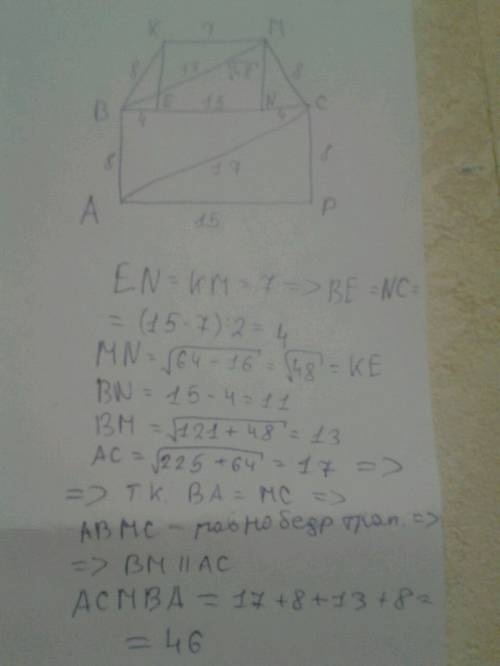 K 7 M
8 13 √48 8
B E 15 N C
4 4
8 17 8
A P
15
EN = KM = 7 => BE = NC =
= (15-7):2 = 4
MN = √64-16 = √48 = KE
BN = 15-4 = 11
BM = √121+48 = 13
AC = √225+64 = 17 =>
=> т к BA = MC =>
ABMC - равнобедр трап. =>
=> BM || AC
ACMBA = 17+8+13+8 =
= 46